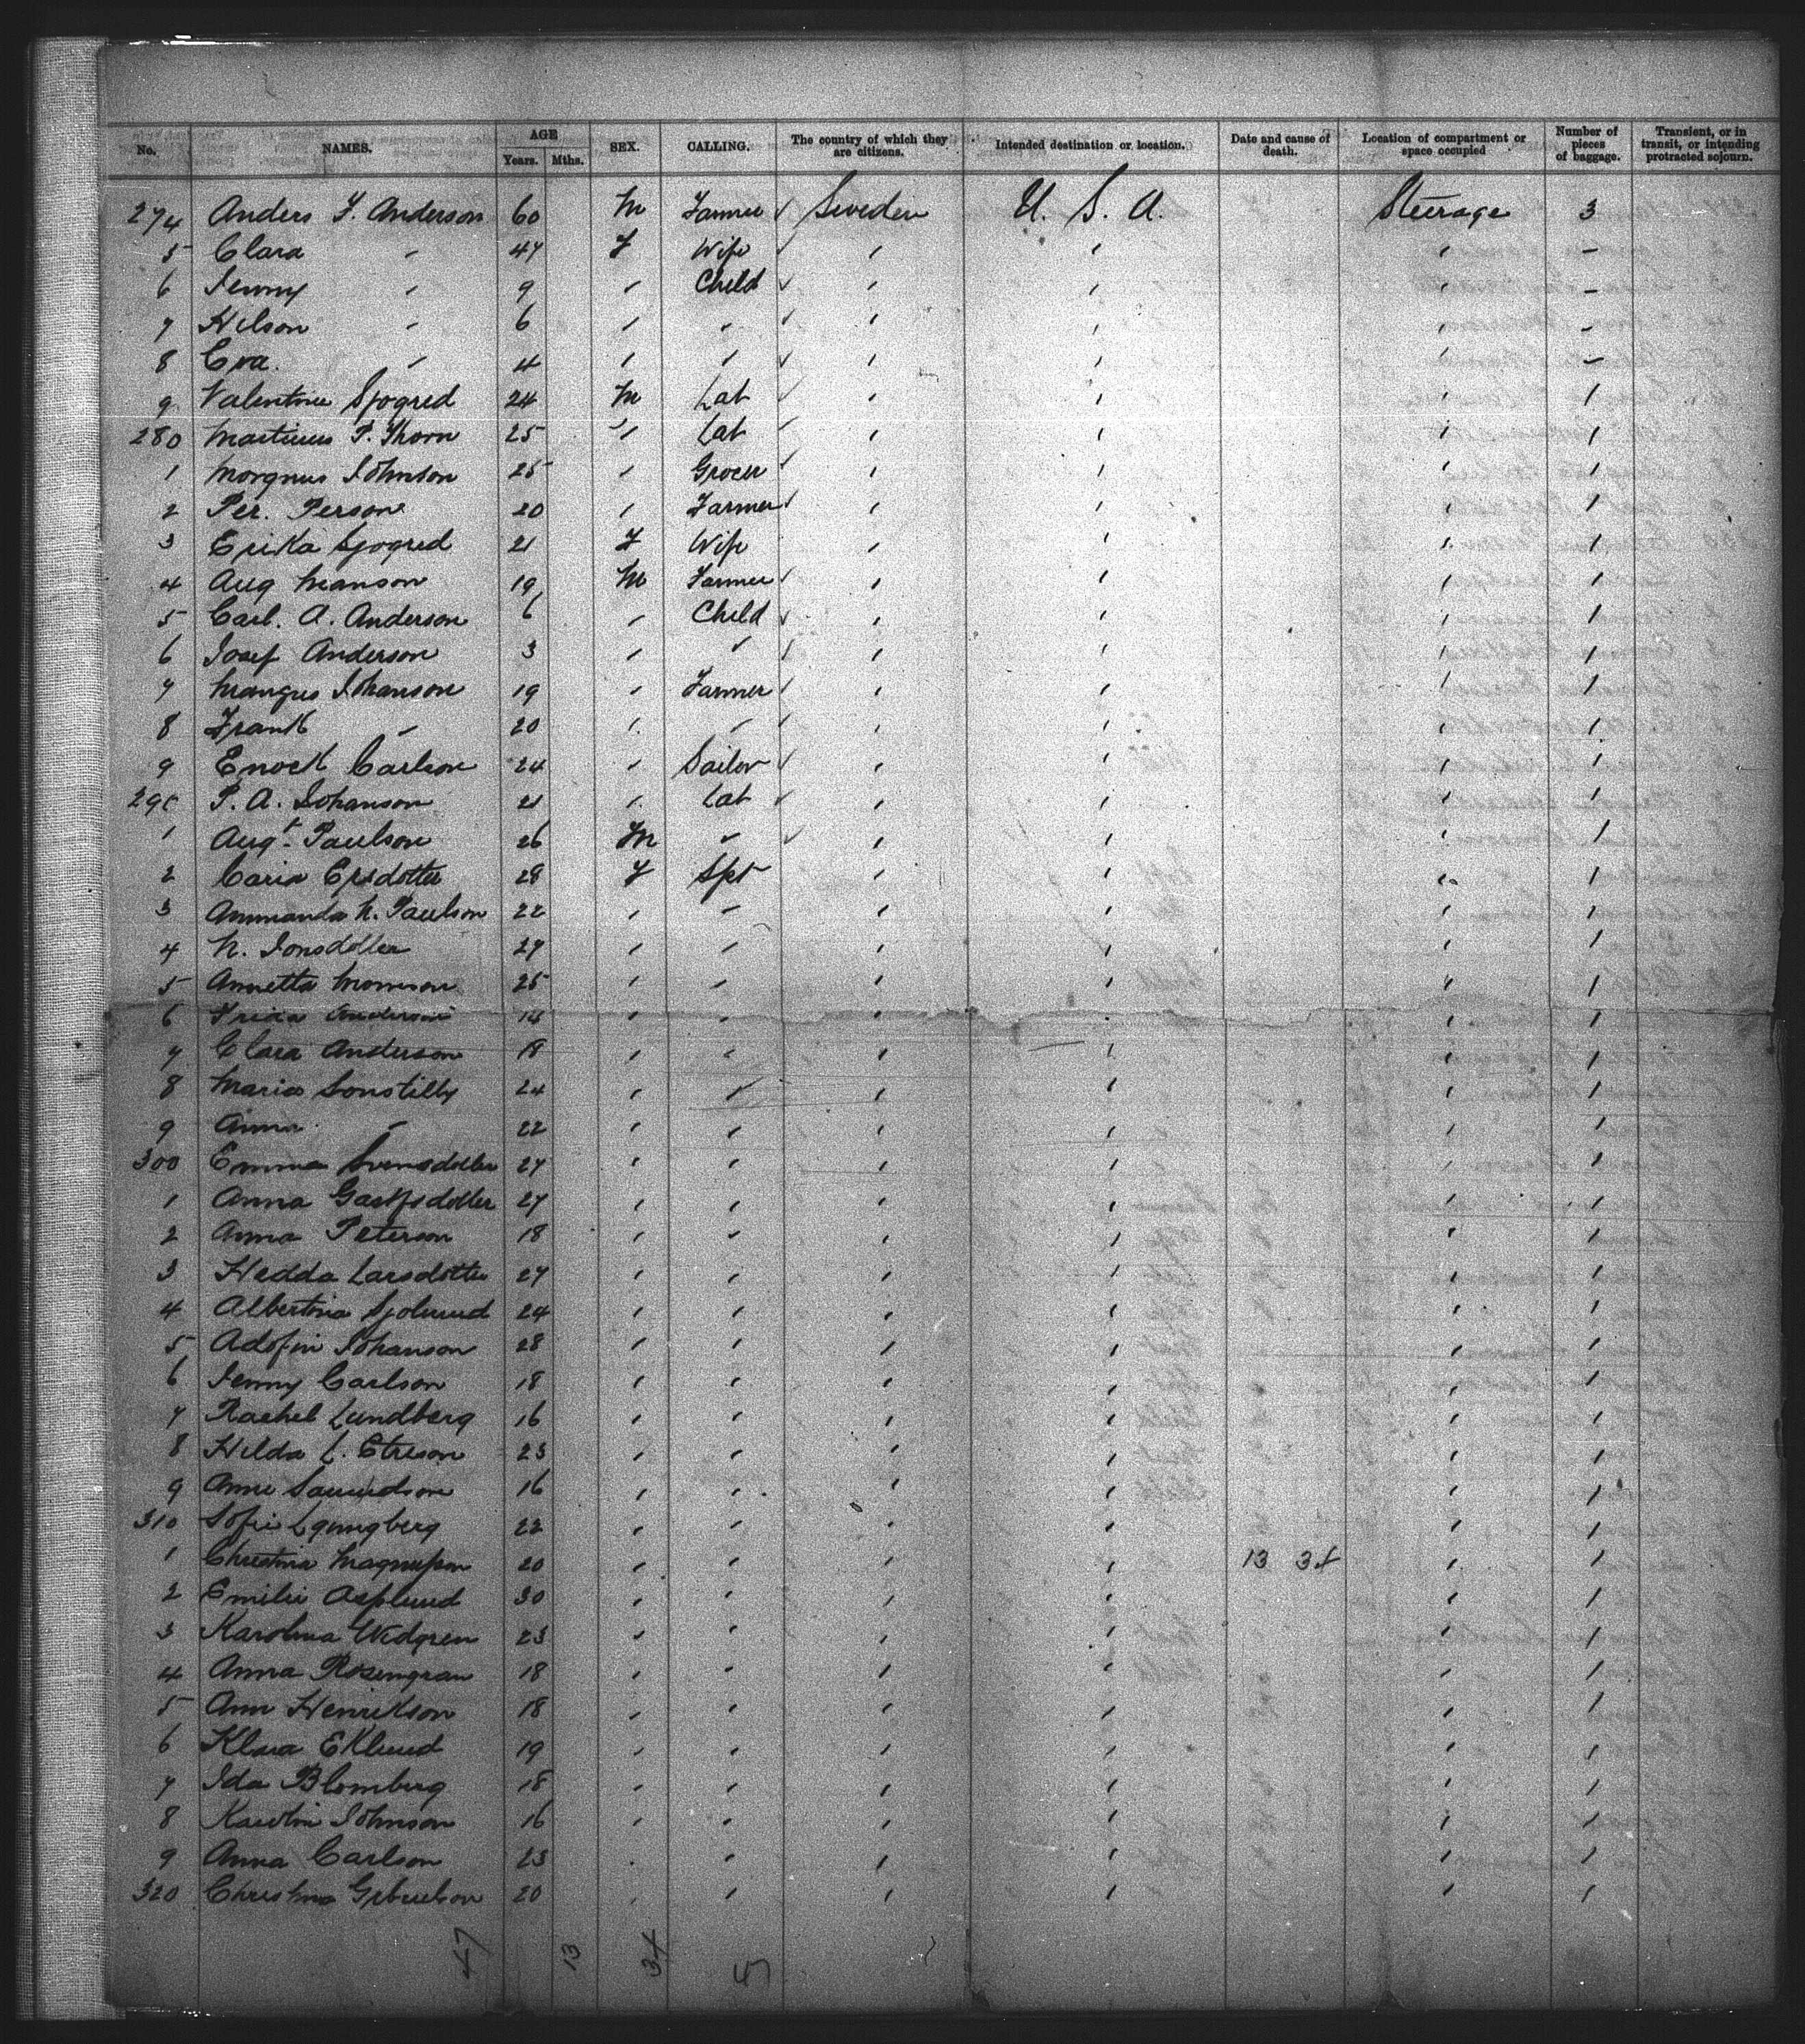 No. NAMES. AGE Years. Mths. SEX. CALLING. The country of which they are citizens. Intended destination or location. Date and cause of death. Location of compartment or space occupied Number of pieces of baggage. Transient, or in transit, or intending protracted sojourn.
274 Anders F. Anderson 60 M Farmer ✓ Sweden U. S. A. Steerage 3
5 Clara " 47 F Wife ✓ " " " –
6 Jenny " 9 " Child ✓ " " " –
7 " 6 " " ✓ " " " –
8 Eva. " 4 " " ✓ " " " –
9 Valentine Sjogred 24 M Lab ✓ " " " 1
280 Martinus P. Thorn 25 " Lab ✓ " " " 1
1 Johnson 25 " Grocer ✓ " " " 1
2 Per. Person 20 " Farmer ✓ " " " 1
3 Erika Sjogred 21 F Wife " " " 1
4 Aug Manson 19 M Farmer ✓ " " " 1
5 Carl. A. Anderson 6 " Child ✓ " " " 1
6 Josef Anderson 3 " " ✓ " " " 1
7 Mangus Johanson 19 " Farmer ✓ " " " 1
8 Frank " 20 " " ✓ " " " 1
9 Enock Carlson 24 " Sailor ✓ " " " 1
290 P. A. Johanson 21 " Lab ✓ " " " 1
1 Augt. Paulson 26 M " ✓ " " " 1
2 Caria Ersdotter 28 F Spt " " " 1
3 Ammanda N. Paulson 22 " " " " " 1
4 N. Jonsdotter 27 " " " " " 1
5 Annetta Monson 25 " " " " " 1
6 Anderson 14 " " " " " 1
7 Clara Anderson 18 " " " " " 1
8 Maria Sonstilly 24 " " " " " 1
9 Anna " 22 " " " " " 1
300 Emma Svensdotter 27 " " " " " 1
1 Anna 27 " " " " " 1
2 Anna Peterson 18 " " " " " 1
3 Hedda Larsdotter 27 " " " " " 1
4 Albertina Sjolund 24 " " " " " 1
5 Adofin Johanson 28 " " " " " 1
6 Jenny Carlson 18 " " " " " 1
7 Rachel Lundberg 16 " " " " " 1
8 Hilda L. Etreson 23 " " " " " 1
9 Anne Samuelson 16 " " " " " 1
310 Sofie Ljungberg 22 " " " " " 1
1 Christina Magnusson 20 " " " " 13 34 " 1
2 Emilie Asplund 30 " " " " " 1
3 Karolina Wedgren 23 " " " " " 1
4 Anna Rosengran 18 " " " " " 1
5 Ann Henrikson 18 " " " " " 1
6 Klara Eklund 19 " " " " " 1
7 Ida Blomberg 18 " " " " " 1
8 Karolin Johnson 16 " " " " " 1
9 Anna Carlson 23 " " " " " 1
320 Christina 20 " " " " " 1
47 13 34